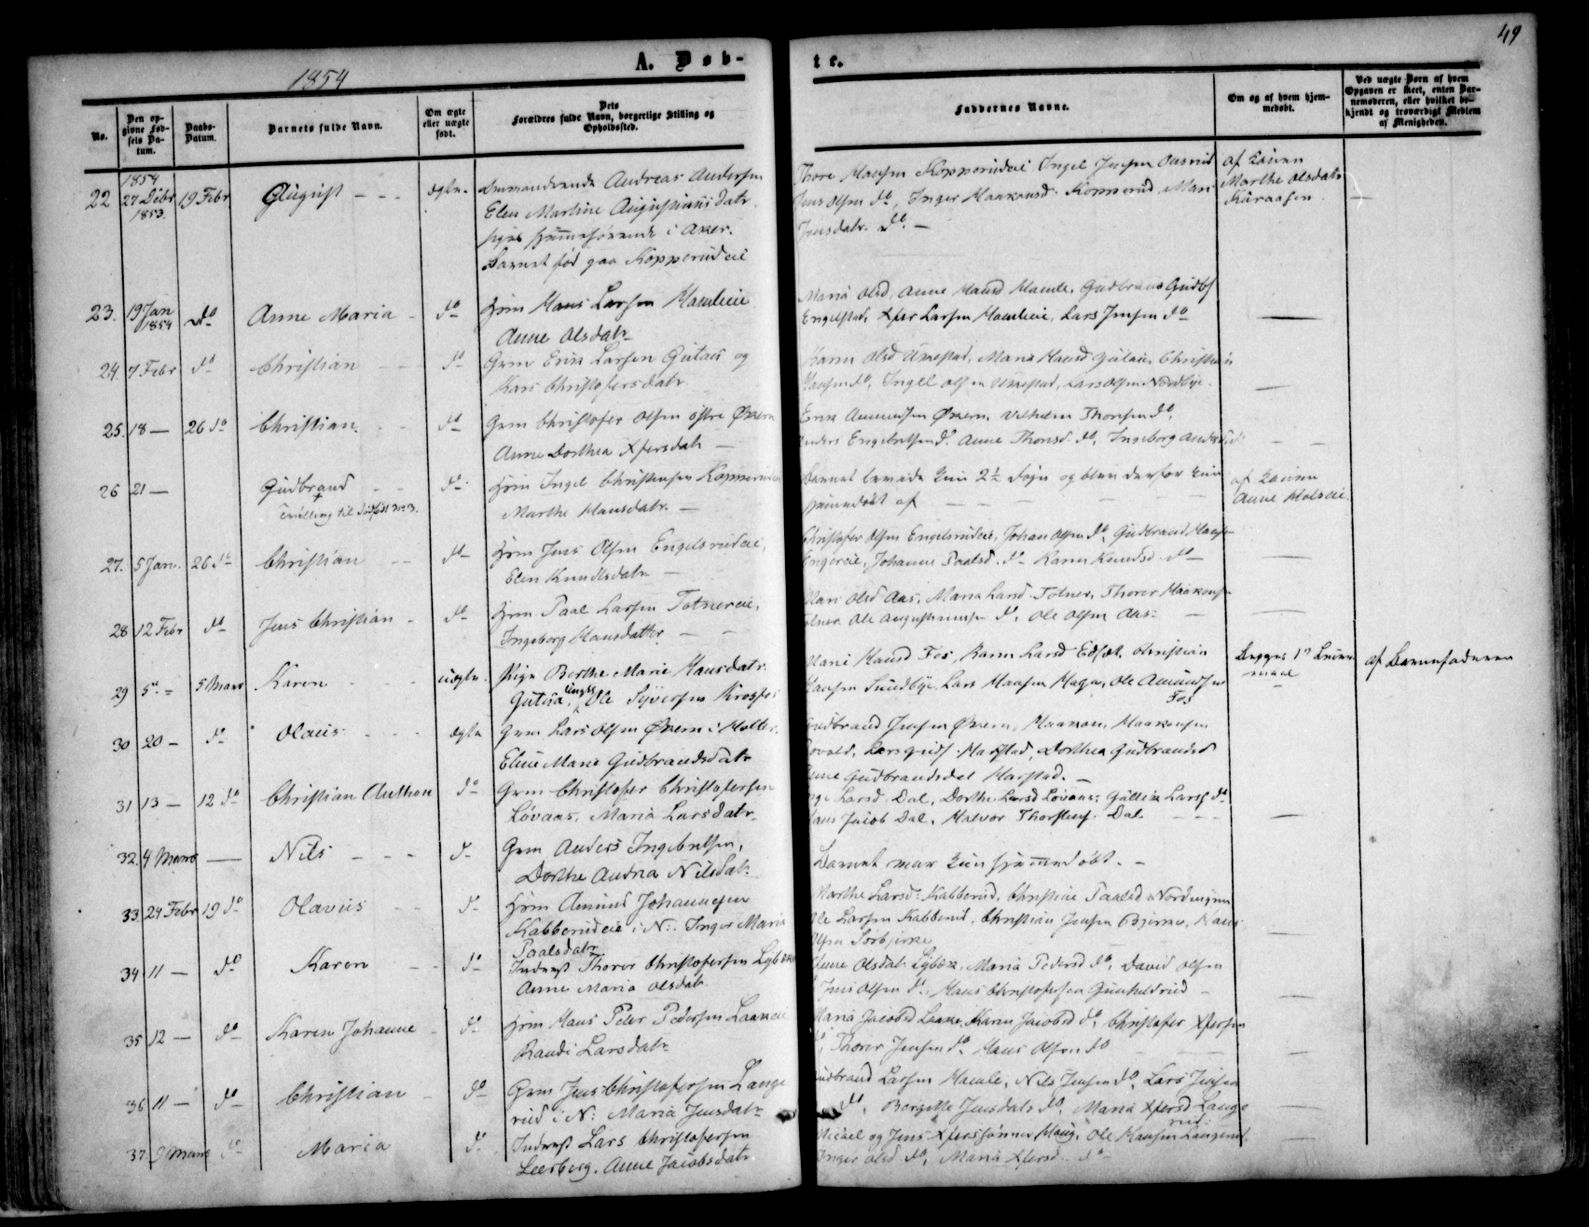 49
1854
A. Døb-
te.
No.
Den op-
givne Fød-
sels Da-
tum.
Daabs-
Datum.
Barnets fulde Navn.
Om ægte
eller uægte
født.
Dets
Forældres fulde Navn, borgerlige Stilling og
Opholdssted.
Faddernes Navne.
Om og af hvem hjem-
medøbt.
Ved uægte Børn af hvem
Opgaven er skeet, enten Bar-
nemoderen, eller hvilket be-
kjendt og troværdigt Medlem
af Menigheden.
1854
22 27 Debr 19 Febr August ægte Andreas Andersen
1853.
Elen Martine Augustinusdatr
hjemmehørende i Aker.
Barnet fød paa Kopperudeie
Thore Hansen Kopperudeie Ingel Jensen
Jens Olsen do, Inger Haakensd. Kopperud, Mari
Jensdatr. do. —
af Konen
Marthe Olsdatr
—
23. 19 Jan do Anne Maria do Hm Hans Larsen Hamleie
1854
Anne Olsdatr
Maria Olsd, Anne Hansd Hamle, Gudbrand Gudbs
Engelstad, Xfer Larsen Hamleie, Lars Jensen do
24. 7 Febr do Christian do Grm Erik Larsen Gutaas og
Kari Christofersdatr
Karen Olsd Ullestad, Maria Hansd Gutaas, Christian
Hansen do, Ingel Olsen Ullestad, Lars Olsen Nordbye.
25. 18 — 26 do Christian do Grm Christofer Olsen østre Økern
Anne Dorthea Xfersdatr —
Erik Amundsen Økern, Vilhelm Thorsen do,
Anders Engebretsen do. Anne Thorsd. do, Ingeborg Andersd
26 21 — Gudbrand do Hm Ingel Christensen Kopperudeie
Tvilling til Dødfødt No 3.
Marthe Hansdatr. —
Barnet levede kun 2½ Døgn og blev derfor kun
hjemmedøbt af
af Konen
Anne Holseie
27. 5 Jan. 26 do Christian do Hm Jens Olsen Engelsrudeie,
Elen Knudsdatr
Christofer Olsen Engelsrudeie, Johan Olsen do, Gudbrand Hansen
Engereie, Johanne Paalsd. do Karen Knudsd do
28 12 Febr do Jens Christian do Hm Paal Larsen Tolnereie,
Ingeborg Hansdatter
Mari Olsd Aas, Maria Larsd Tolner, Thorer Haakons
Tolner Ole Augustinusen do, Ole Olsen Aas.
29 5te = 5 Mars Karen uægte. Pige Berthe Marie Hansdatr
Gutisa, Ungk Ole Syversen Krogfos
Mari Hansd Fos, Karen Larsd Edsæt, Christian
Hansen Sundbye, Lars Hansen Hagen, Ole Amundsen
Fos
Begges 1te Leier-
maal
af Barnefaderen
30 20 — do Olaus ægte Grm Lars Olsen Økern i Holter,
Eline Marie Gudbrandsdatr
Gudbrand Jensen Økern, Haakon Haakonsen
Lars Guds. Harstad, Dorthea Gudbrandsd
Anne Gudbrandsdat Harstad. —
31 13 — 12 do Christian Anthon do Grm Christofer Christofersen
Løvaas, Maria Larsdatr
Inge Larsd. Dal, Dorthe Larsd Løvaas, Gullik Larss do
Hans Jacob Dal, Halvor Thorstens. Dal
32. 4 Mars — Nils do Grm Anders Ingebretsen,
Dorthe Andrea Nilsdatr
Barnet var kun hjemmedøbt. —
33 24 Febr 19 do Olavus do Hm Amund Johannesen
Kabberudeie i N: Inger Maria
Paalsdatr
Marthe Larsd. Kabberud, Christine Paalsd Nordengen
Ole Larsen Kabberud, Christian Jensen Bjerke, Hans
Olsen Sørbjerke
34 11 — do Karen do Inderst Thorer Christofersen Lybæk
Anne Maria Olsdatr
Anne Olsdatr Lybæk, Maria Pedersd do, David Olsen
Jens Olsen do, Hans Christofersen Gunhildrud
35 12 — do Karen Johanne do Hm Hans Peter Pedersen Laakeeie
Randi Larsdatr
Maria Jacobsd Laake, Karen Jacobsd do, Christofer Xfersen
do, Thorer Jensen do. Hans Olsen do
36 11 — do Christian do Grm Jens Christofersen Lange
rud i N: Maria Jensdatr
Gudbrand Larsen Hamle, Nils Jensen do, Lars Jensen
do, Bergitte Jensdatr do, Maria Xfersd Lange
rud.
37 9 Mars do Maria do Inderst Lars Christofersen
Leerberg. Anne Jacobsdatr
Michel og Jens Xferssønner Haug, Ole Hansen Langerud,
Inger Olsd do, Maria Xfersd. do